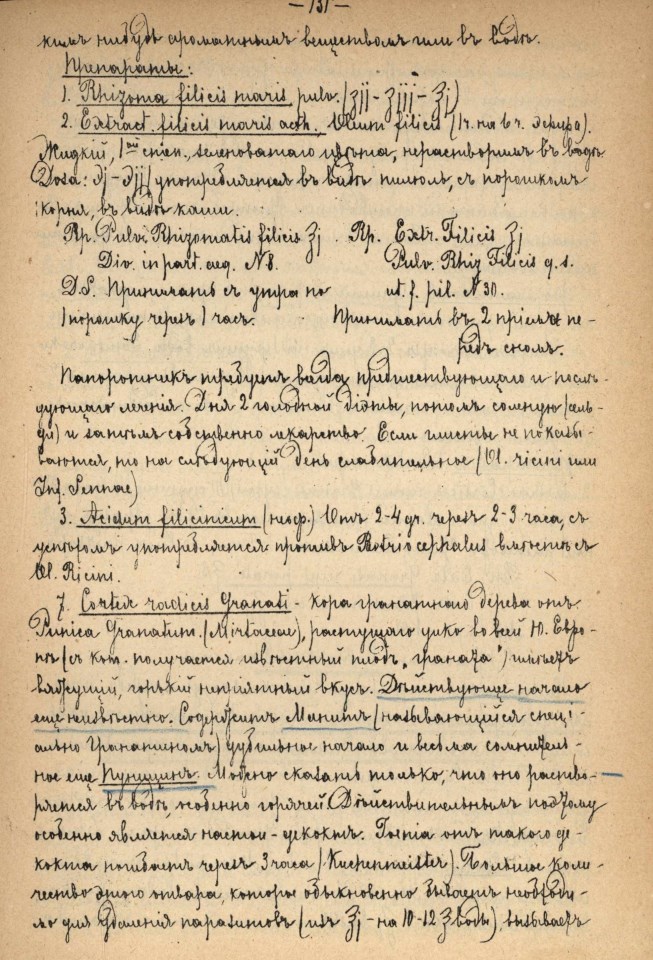 — 131 —
кимъ нибудь ароматнымъ веществомъ или въ водѣ.
Препараты:
1. Rhizoma filicis maris pulv. (ʒij – ʒiij – ℥j)
2. Extract. filicis maris aeth. Oleum filicis (1ч. на 8 ч. эѳира).
Жидкій, 1ой степ., зеленоватаго цвѣта, нерастворимъ въ водѣ.
Doza: ℈j – ℈ij употребляется въ видѣ пилюль, съ порошкомъ
корня, въ видѣ каши.
Rp. Pulv. Rhizomatis filicis ℥j Rp. Extr. Filicis ʒj
Div. in part. aeq. N 8. Pulv. Rhiz Filicis q. s.
D.S. Принимать съ утра по ut. f. pil. N 30.
1 порошку черезъ 1 часъ. Принимать въ 2 пріема пе-
редъ сномъ.
Папоротникъ требуетъ всегда предшествующаго и послѣ-
дующаго леченія. Дня 2 голодной діэты, потомъ соленую (сель-
ди) и затѣмъ собственно лекарство. Если глисты не показы-
ваются, то на слѣдующій день слабительное (Ol. ricini или
Inf. Sennae)
3. Acidum filicinicum (неоф.) Отъ 2-4 gr. черезъ 2-3 часа, съ
успѣхомъ употребляется противъ Botriocephalus вмѣстѣ съ
Ol. Ricini.
7. Cortex radicis Granati - кора гранатнаго дерева отъ
Punica Granatum. (Mirtaceae), растущаго уже во всей Ю. Евро-
пѣ (съ кот. получается извѣстный плодъ „граната") имѣетъ
вяжущій, горькій непріятный вкусъ. Дѣйствующее начало
еще неизвѣстно. Содержитъ Манитъ (называющійся спеці-
ально Гранатиномъ) дубильное начало и весьма сомнитель-
ное еще Пуницинъ. Можно сказать только, что оно раство-
ряется въ водѣ, особенно горячей. Дѣйствительнымъ поэтому
особенно является настои-декоктъ. Toenia отъ такого де-
кокта погибаетъ черезъ 3 часа (Kuchenmeister). Большое коли-
чество этого отвара, которое обыкновенно бываетъ необходи-
мо для удаленія паразитовъ (изъ ℥j – на 10-12 ℥ воды), вызываетъ